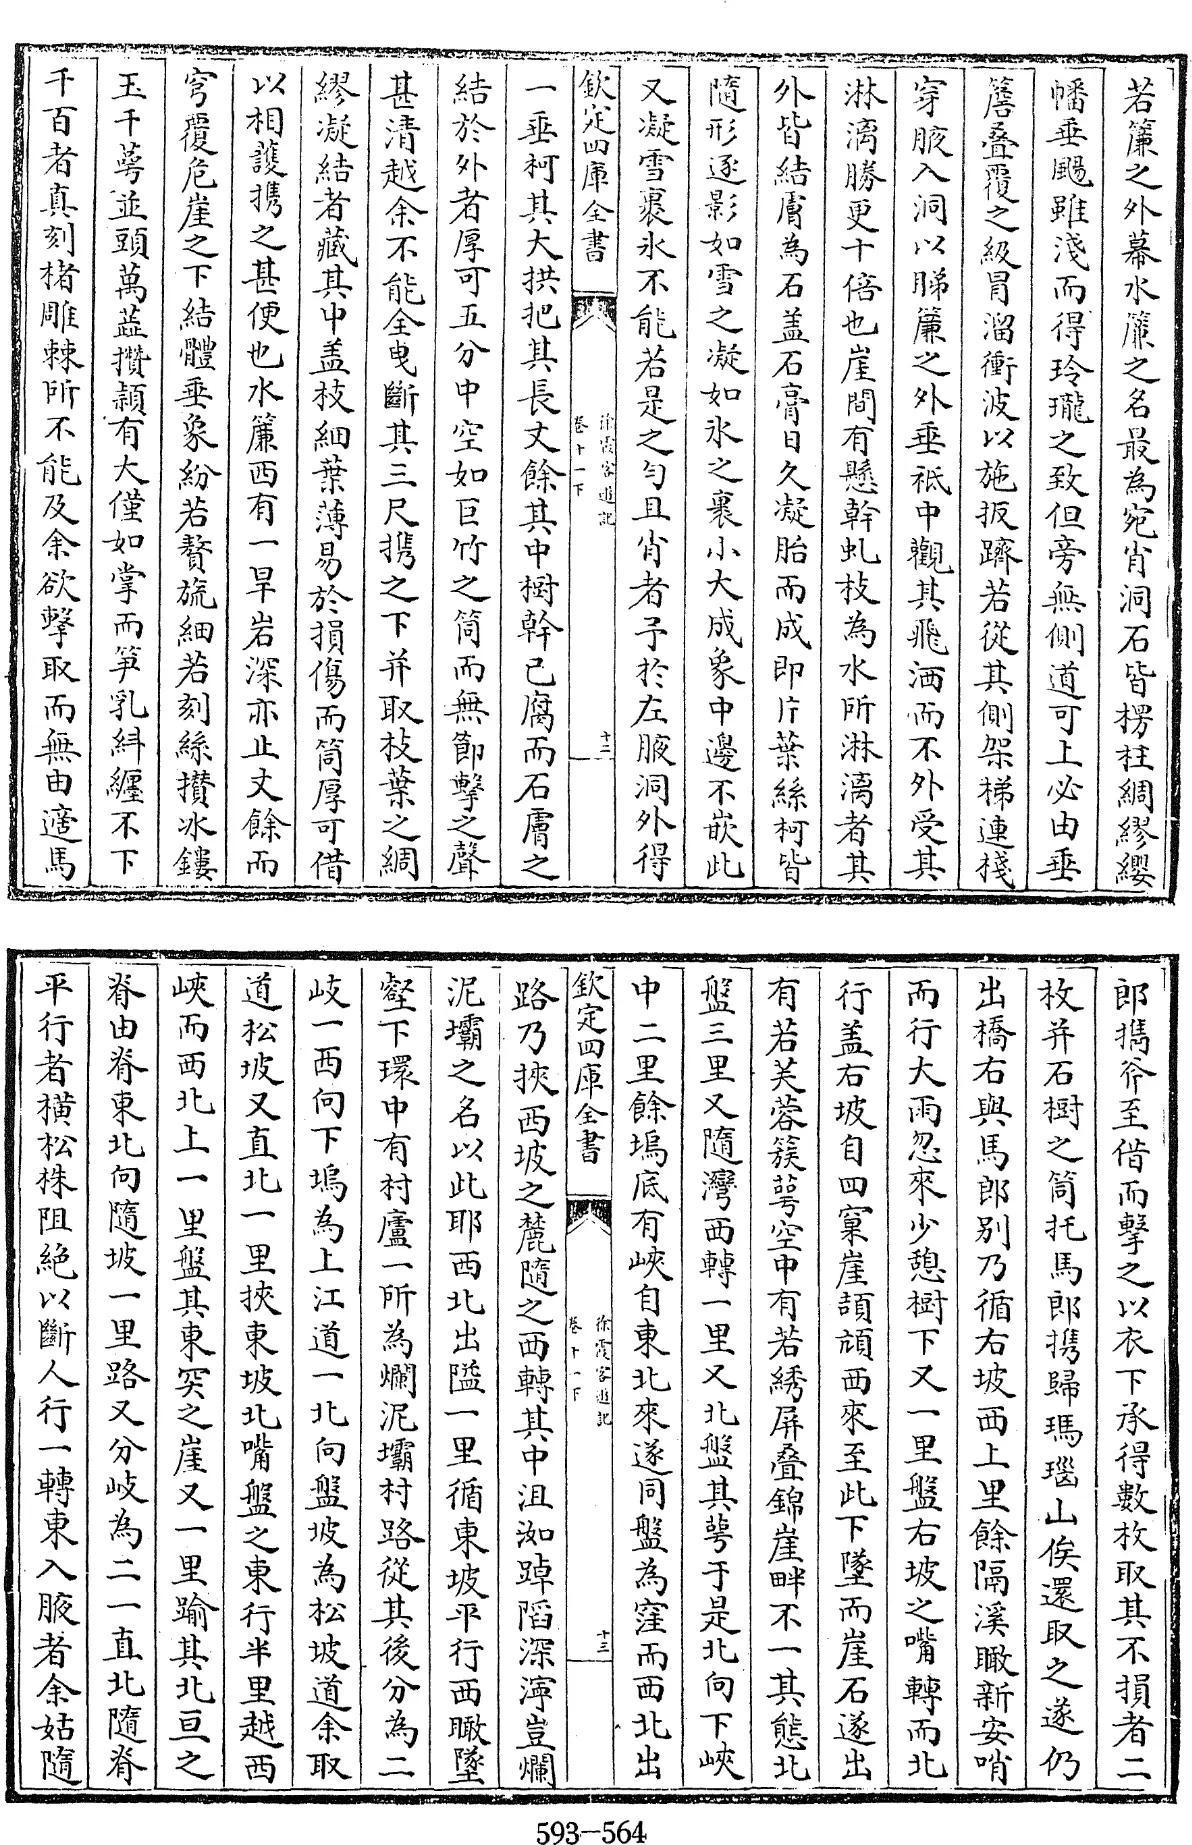 若簾之外幕水簾之名最為宛肖洞石皆楞柱綢繆纓
幡垂颺雖淺而得玲瓏之致但旁無側道可上必由垂
簷叠覆之級冒溜衝波以施扳躋若從其側架梯連棧
穿腋入洞以睇簾之外垂祇中觀其飛洒而不外受其
淋漓勝更十倍也崖間有懸幹虬枝為水所淋漓者其
外皆結膚為石盖石膏日久凝胎而成即片葉絲柯皆
隨形逐影如雪之凝如氷之裹小大成象中邊不嵌此
又凝雪裹氷不能若是之勻且肖者予於左腋洞外得
欽定四庫全書
徐霞客遊記
卷十一下
十二
一垂柯其大拱把其長丈餘其中樹幹已腐而石膚之
結於外者厚可五分中空如巨竹之筒而無節擊之聲
甚清越余不能全曳斷其三尺携之下并取枝葉之綢
繆凝結者藏其中盖枝細葉薄易於損傷而筒厚可借
以相護携之甚便也水簾西有一旱岩深亦止丈餘而
穹覆危崖之下結體垂象紛若贅旒細若刻絲攢氷鏤
玉千萼並頭萬蕋攢頴有大僅如掌而笋乳糾纏不下
千百者真刻楮雕棘所不能及余欲擊取而無由適馬
郎攜斧至借而擊之以衣下承得數枚取其不損者二
枚并石樹之筒托馬郎携歸瑪瑙山俟還取之遂仍
出橋右與馬郎别乃循右坡西上里餘隔溪瞰新安哨
而行大雨忽來少憩樹下又一里盤右坡之嘴轉而北
行盖右坡自四窠崖頡頏西來至此下墜而崖石遂出
有若芙蓉簇萼空中有若綉屏叠錦崖畔不一其態北
盤三里又隨灣西轉一里又北盤其萼于是北向下峽
中二里餘塢底有峽自東北來遂同盤為窪而西北出
欽定四庫全書
徐霞客遊記
卷十一下
十三
路乃挾西坡之麓隨之西轉其中沮洳踔陷深濘豈爛
泥壩之名以此耶西北出隘一里循東坡平行西瞰墜
壑下環中有村廬一所為爛泥壩村路從其後分為二
岐一西向下塢為上江道一北向盤坡為松坡道余取
道松坡又直北一里挾東坡北嘴盤之東行半里越西
峽而西北上一里盤其東突之崖又一里踰其北亘之
脊由脊東北向隨坡一里路又分岐為二一直北隨脊
平行者横松株阻絶以斷人行一轉東入腋者余姑隨
593—564